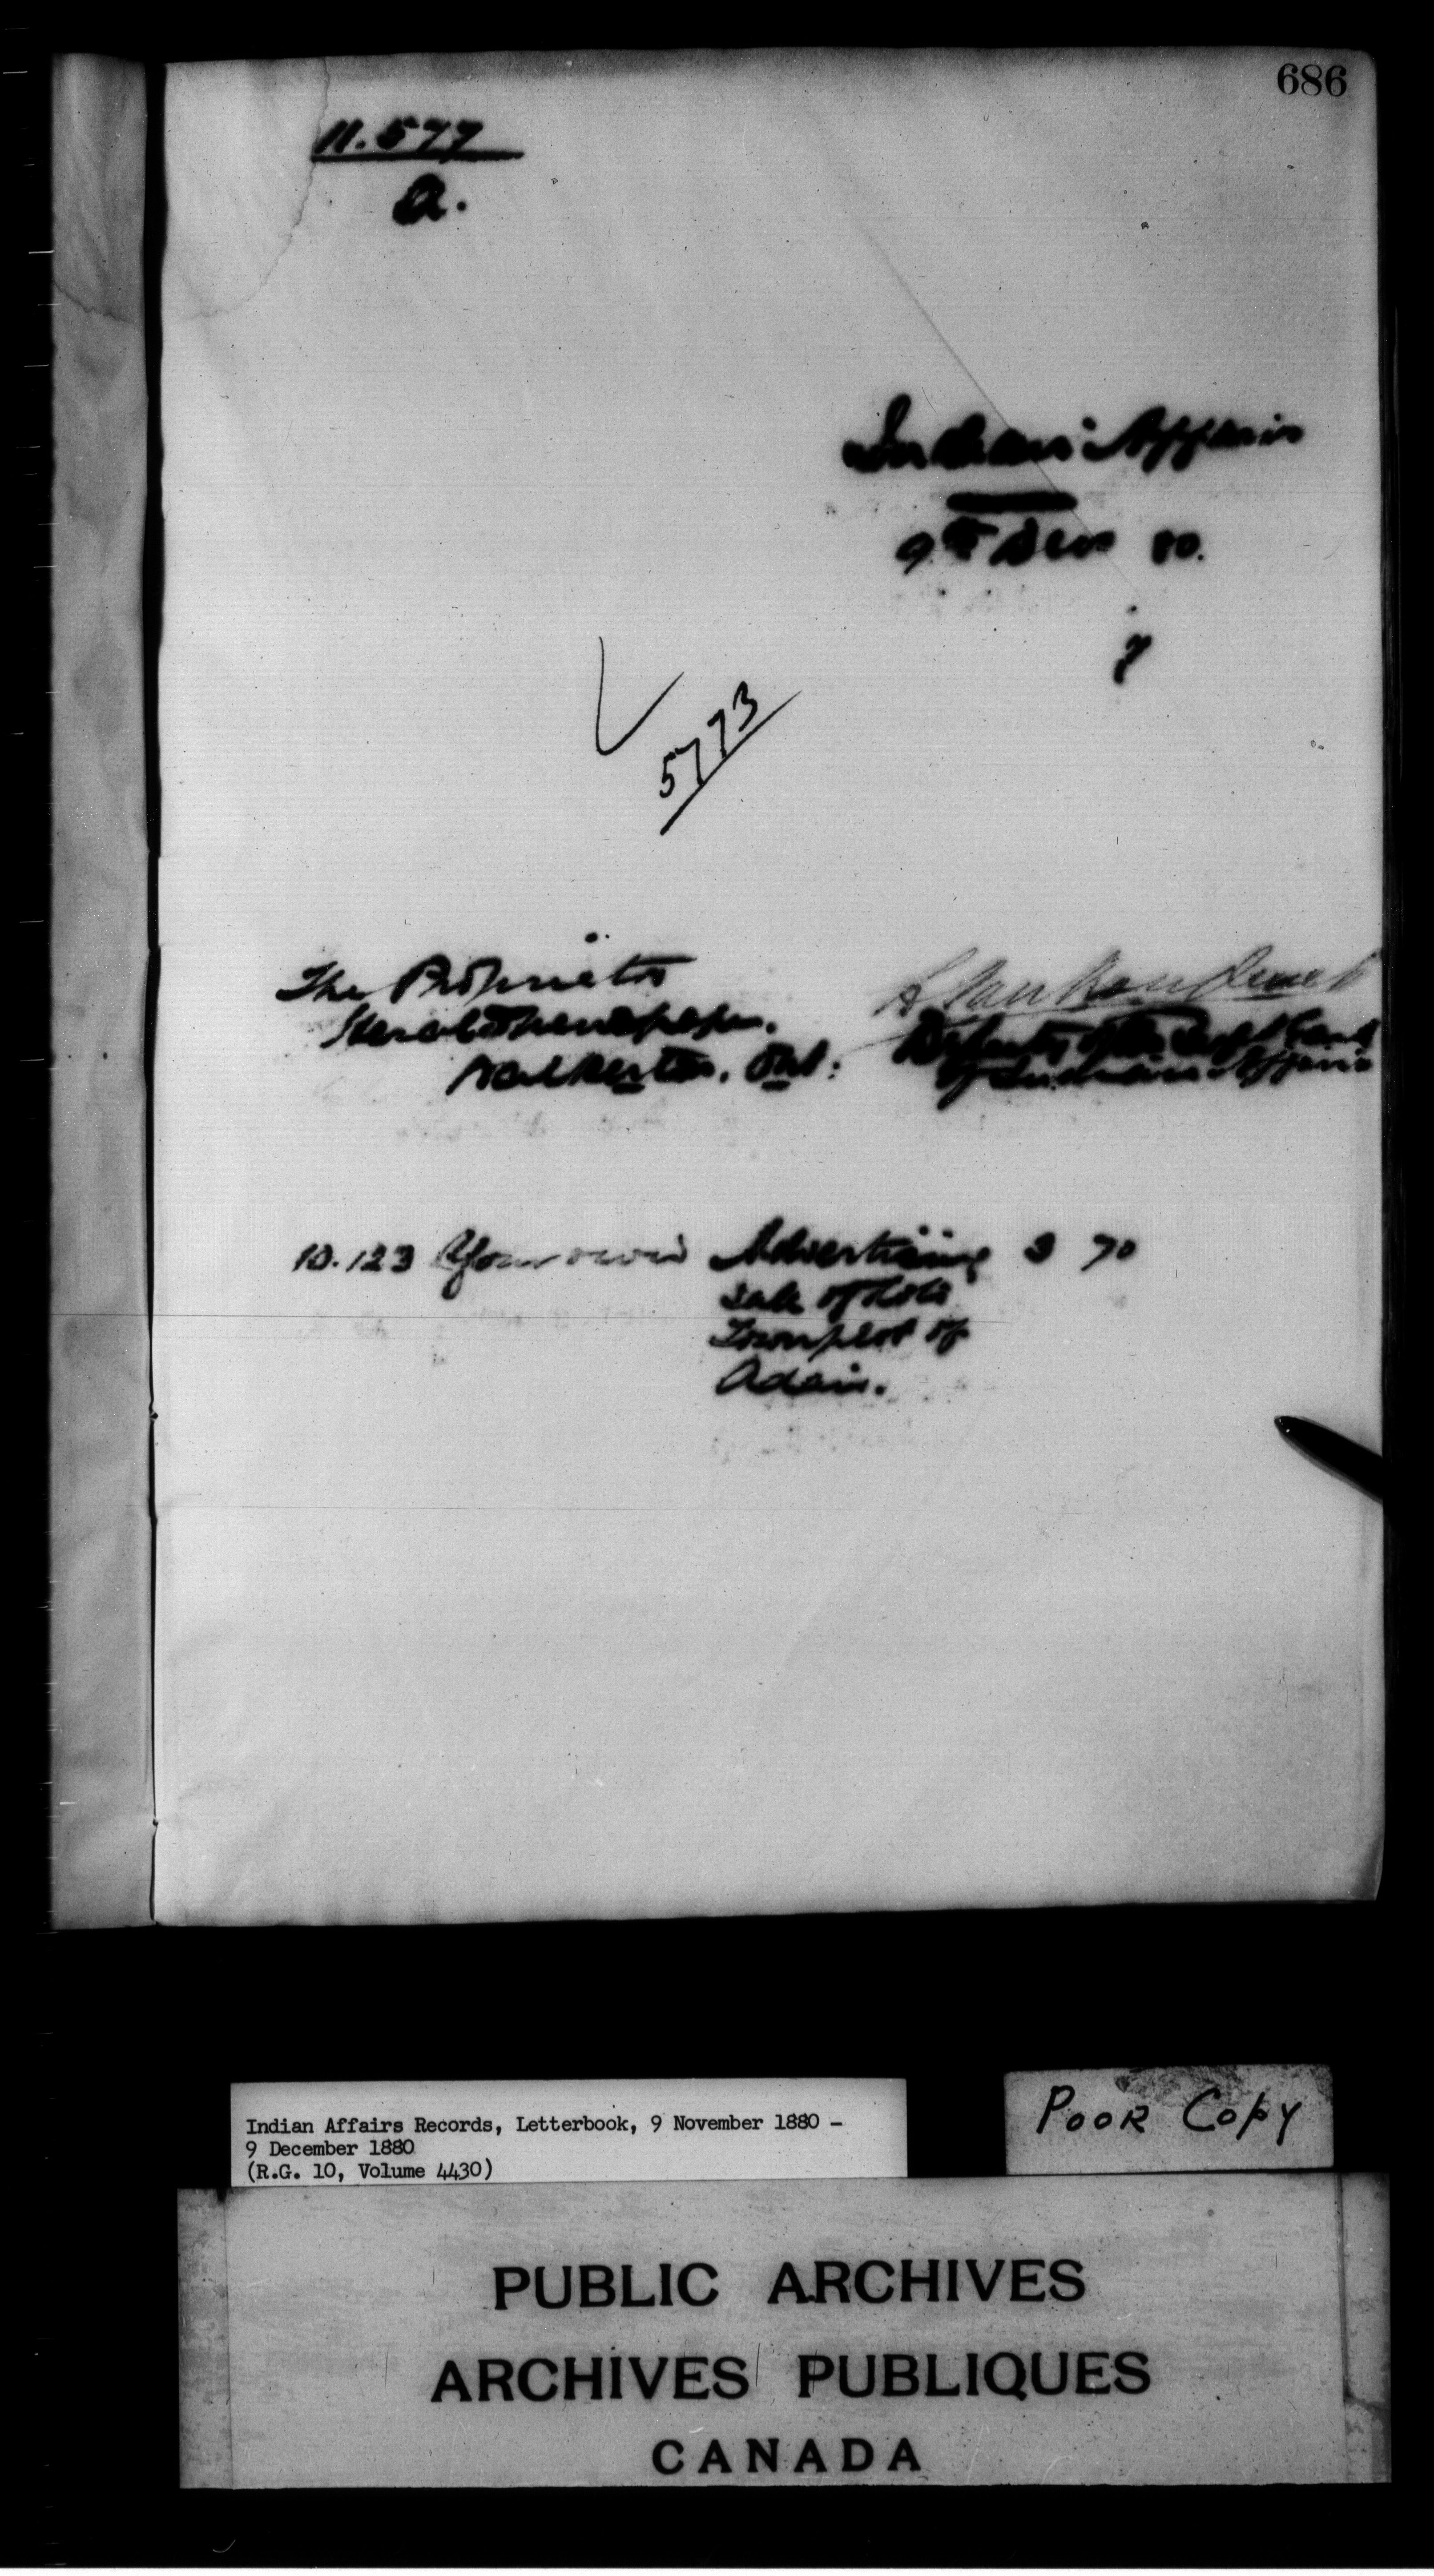 686
11.577
a.
Indian Affairs
9th Decr 80.
5773
The Proprietor
Herald Newspaper.
Walkerton. Ont:
L Vankoughnet
Deputy of the Supt Genl
of Indian Affairs
10.123 Your own Advertising 3 70
sale of lots
Townplot of
Adair.
Indian Affairs Records, Letterbook, 9 November 1880 -
9 December 1880
(R.G. 10, Volume 4430)
POOR COPY
PUBLIC ARCHIVES
ARCHIVES PUBLIQUES
CANADA